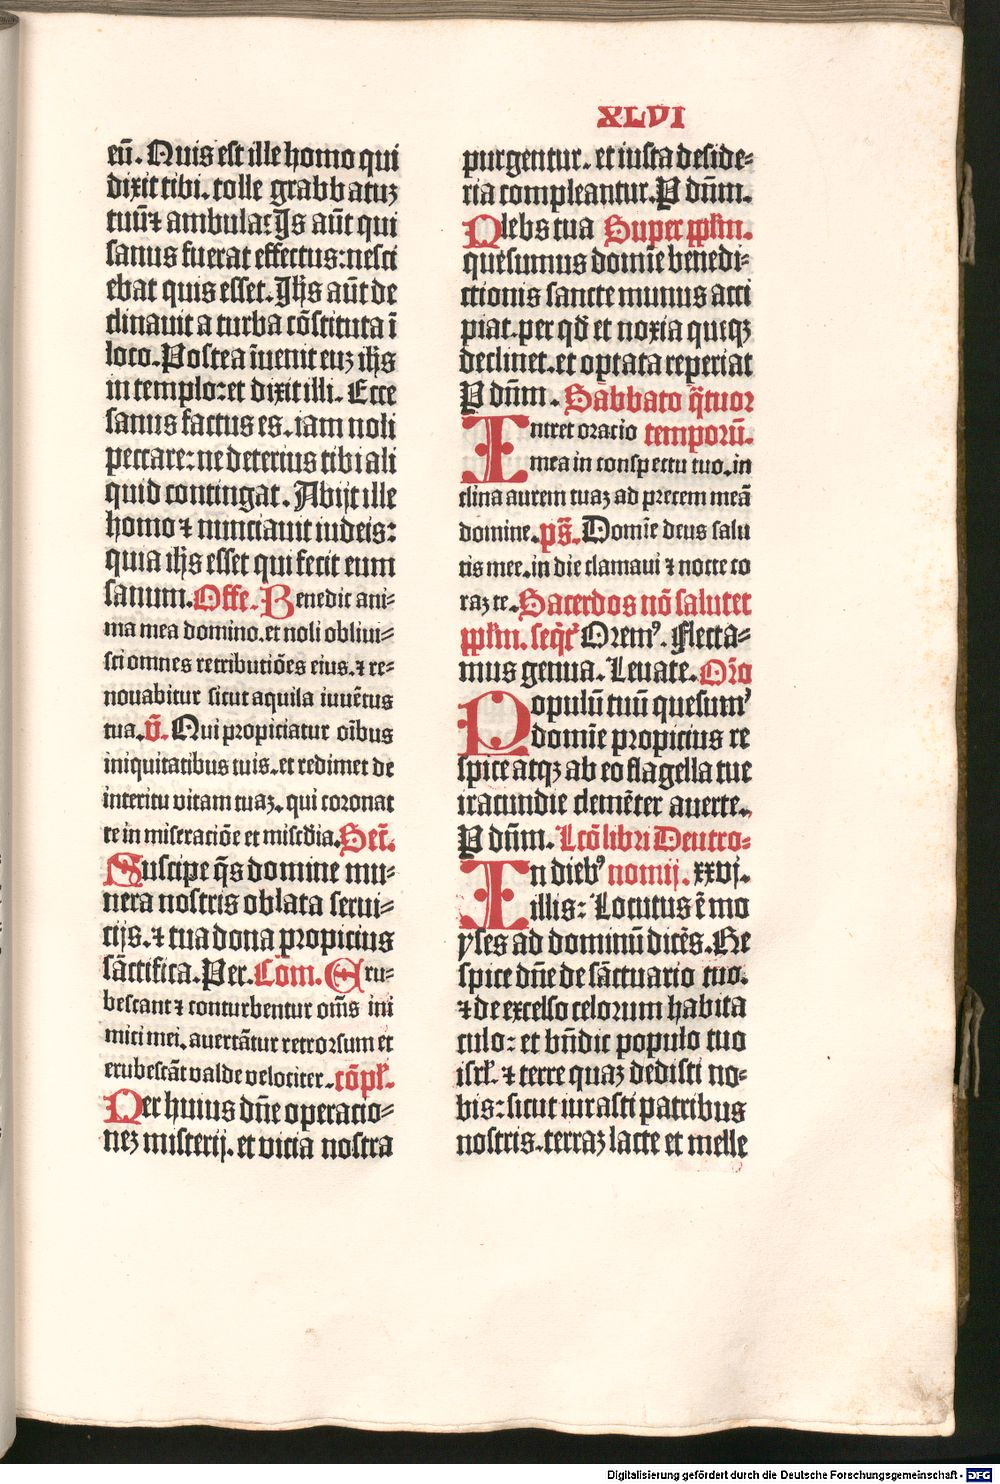 XLVI
eū. Quis est ille homo qui
dixit tibi. tolle grabbatuꝫ
tuū⁊ ambula: Is aūt qui
sanus fuerat effectus: nesci
ebat quis esset. Ihs aūt de
clinauit a turba cōstituta ī
loco. Postea īuenit euꝫ ihs
in templo: et dixit illi. Ecce
sanus factus es. iam noli
peccare: ne deterius tibi ali
quid contingat. Abijt ille
homo ⁊ nunciauit iudeis:
quia ihs esset qui fecit eum
sanum. Offe. Benedic ani⸗
ma mea domino. et noli obliui⸗
sci omnes retributiōes eius. ⁊ re⸗
nouabitur sicut aquila iuuētus
tua. v̄. Qui propiciatur oībus
iniquitatibus tuis. et redimet de
interitu vitam tuaꝫ. qui coronat
te in miseraciōe et miscdia. Secr̄.
Suscipe q̄s domine mu⸗
nera nostris oblata serui⸗
cijs. ⁊ tua dona propicius
sāctifica. Per. Com. Eru⸗
bescant ⁊ conturbentur om̄s ini
mici mei. auertātur retrorsum et
erubescāt valde velociter. cōpl̄.
Per huius dn̄e operacio⸗
neꝫ misterij. et vicia nostra
purgentur. et iusta deside⸗
ria compleantur. P dn̄m.
Plebs tua Super pplm̄.
quesumus domīe benedi⸗
ctionis sancte munus acci
piat. per qd̄ et noxia queqꝫ
declinet. et optata reperiat
P dn̄m. Sabbato q̄tuor
Intret oracio temporū.
mea in conspectu tuo. in
clina aurem tuaꝫ ad precem meā
domine. ps̄. Domīe deus salu
tis mee. in die clamaui ⁊ nocte co
raꝫ te. Sacerdos nō salutet
pplm̄. seqt̄ Oremꝰ. Flecta⸗
mus genua. Leuate. Oro
Populū tuū quesumꝰ
domīe propicius re
spice atqꝫ ab eo flagella tue
iracundie clemēter auerte.
P dn̄m. Lcō libri Deutro⸗
In diebꝰ nomij. xxvj.
illis: Locutus ē mo
yses ad dominū dicēs. Re
spice dn̄e de sāctuario tuo.
⁊ de excelso celorum habita
culo: et bn̄dic populo tuo
isrl̄. ⁊ terre quaꝫ dedisti no⸗
bis: sicut iurasti patribus
nostris. terraꝫ lacte et melle
Digitalisierung gefördert durch die Deutsche Forschungsgemeinschaft - DFG